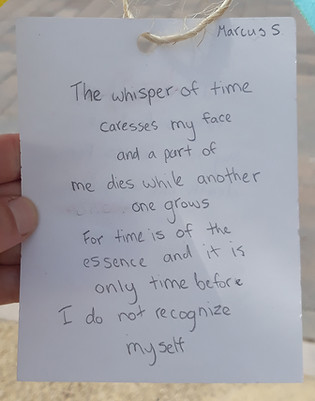 Marcus S
The whisper of time
caresses my face
and a part of
me dies while another
one grows
For time is of the
essence and it is
only time before
I do not recognize
myself